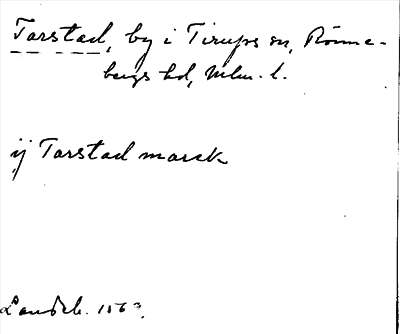 Tarstad, by i Tirups sn, Rönne-
bergs hd, Mlm. l.
ij Tarstad marck
Landsb. 1563.